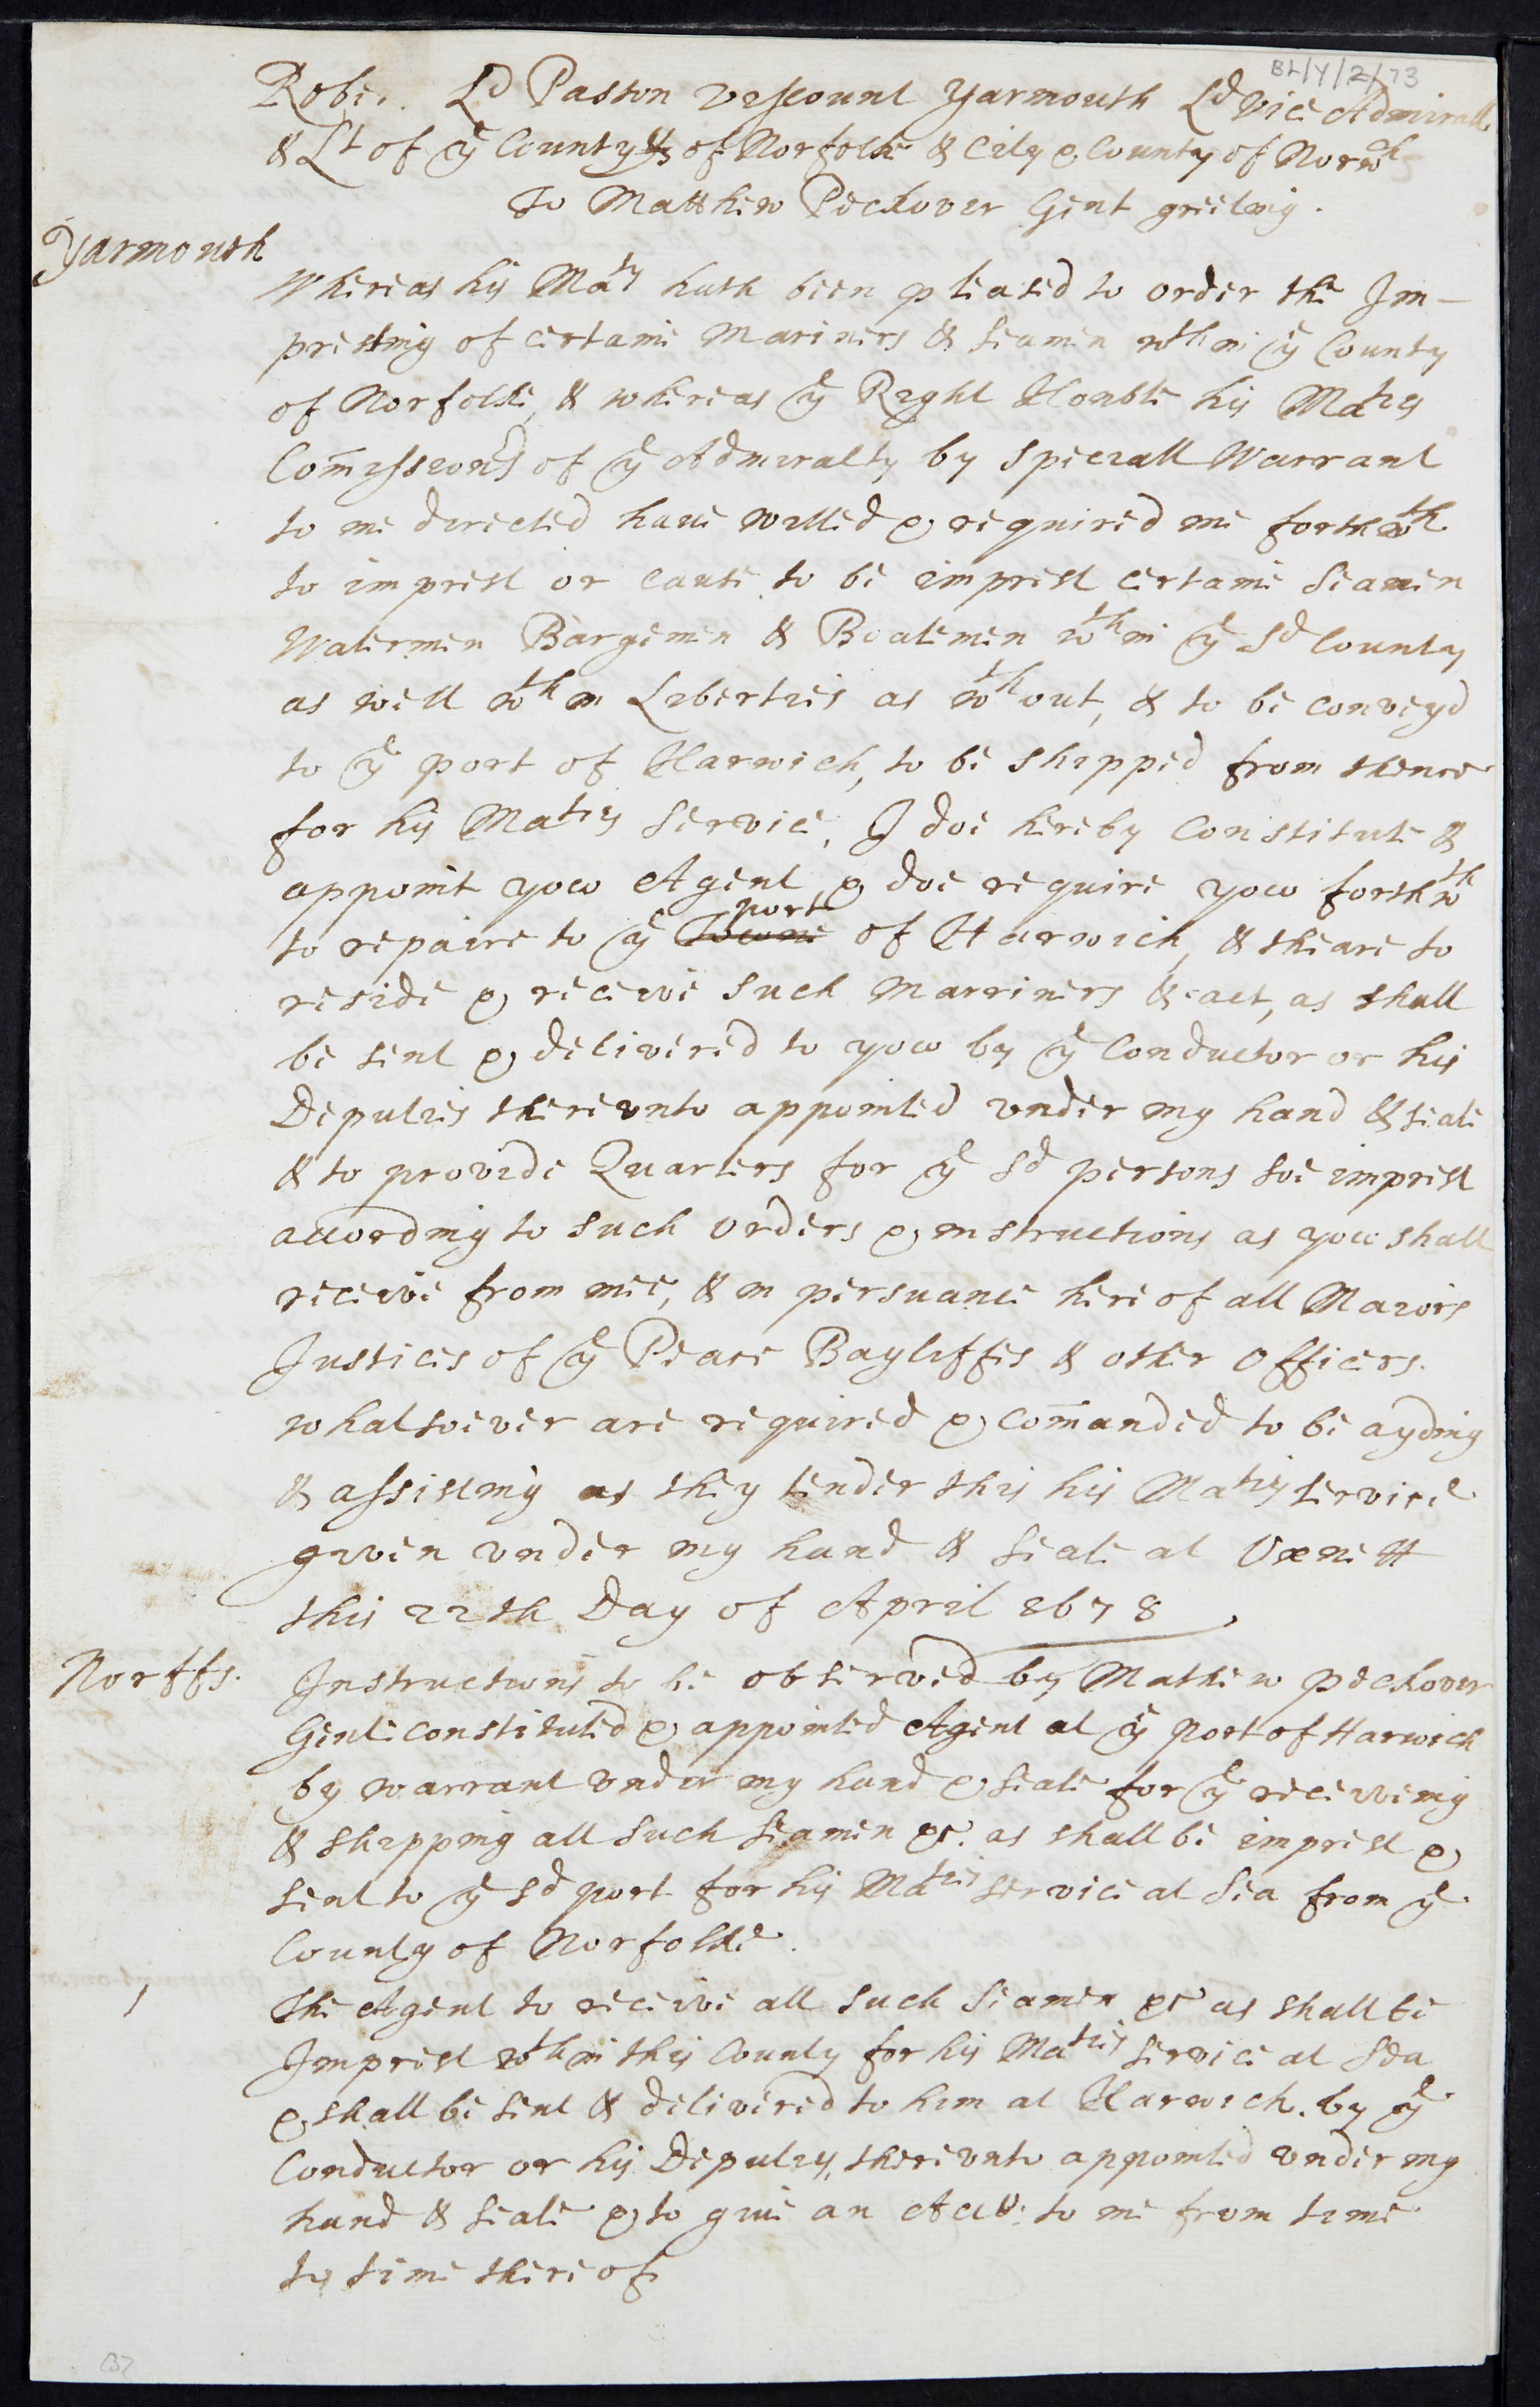 BL/Y/2/73
Robt. Ld Paston Viscount Yarmouth Ld Vice Admirall
& Lt of ye County of Norfolke & City & County of Norwch
To Matthew Peckover Gent greeting.
Yarmouth
Whereas his Maty hath been pleased to order the Im-
presting of certaine Mariners & Seamen wthin ye County
of Norfolke, & whereas ye Right Honble his Maties
Com̄issionrs of ye Admiralty by Speciall Warrant
to me directed have willed & required me forthwth
to imprest or cause to be imprest certaine Seamen
Watermen Bargemen & Boatemen wthin ye Sd County
as well wthin Liberties as wthout, & to be conveyd
to ye port of Harwich, to be shipped from thence
for his Maties Service, I doe hereby Constitute &
appoint yow Agent, & doe require yow forthwth
to repaire to ye Towne port of Harwich, & theare to
reside & receive Such Marriners &c act, as shall
be sent & delivered to yow by ye Conductor or his
Deputies therevnto appointed vnder my hand & seale
& to provide Quarters for ye Sd persons soe imprest
according to such orders & instructions as yow shall
receive from mee, & in persuance hereof all Maiors
Justices of ye Peace Bayliffes & other officers
whatsoever are required & com̄anded to be ayding
& assisting as they tender this his Maties service
given vnder my hand & seale at Oxnett
this 22th Day of April 1678
Norffs.
Instructions to be observed by Mathew Peckover
Gent constituted & appointed Agent at ye port of Harwich
by warrant vnder my hand & seale for ye receiveing
& shipping all such seamen &c. as shall be imprest &
sent to ye Sd port for his Maties service at Sea from ye
County of Norfolke.
1
The Agent to receive all such Seamen &c as shall be
Imprest wthin this County for his Maties service at Sea
& shall be sent & delivered to him at Harwich by ye
Conductor or his Deputies, therevnto appointed vnder my
hand & seale & to give an Acct. to me from time
to time thereof